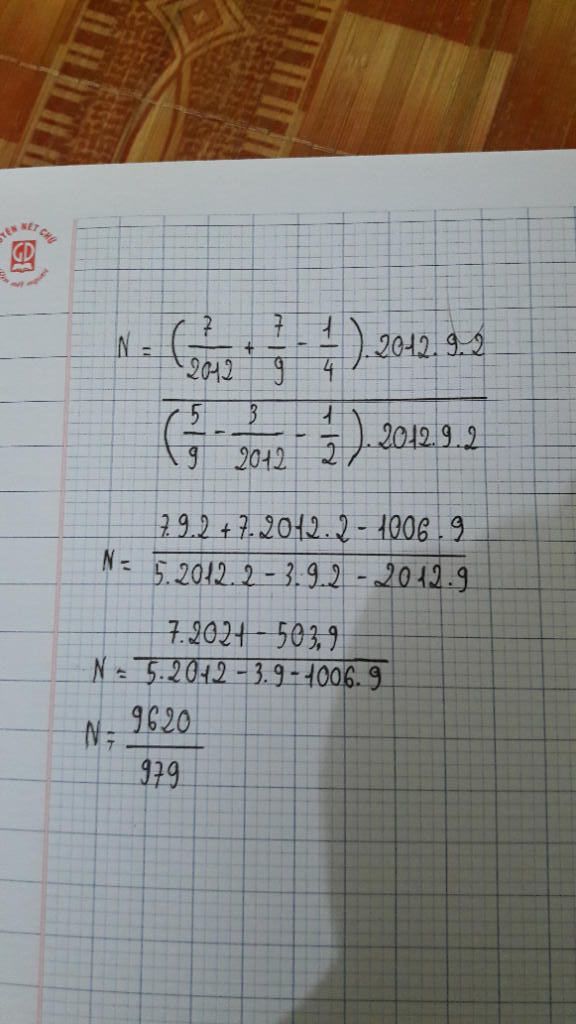 YỆN NÉT CHỮ
GD
Rèn nết người
N = (7/2012 + 7/9 - 1/4).2012.9.2
(5/9 - 3/2012 - 1/2).2012.9.2
N = 7.9.2 + 7.2012.2 - 1006.9
5.2012.2 - 3.9.2 - 2012.9
N = 7.2021 - 503.9
5.2012 - 3.9 - 1006.9
N = 9620
979